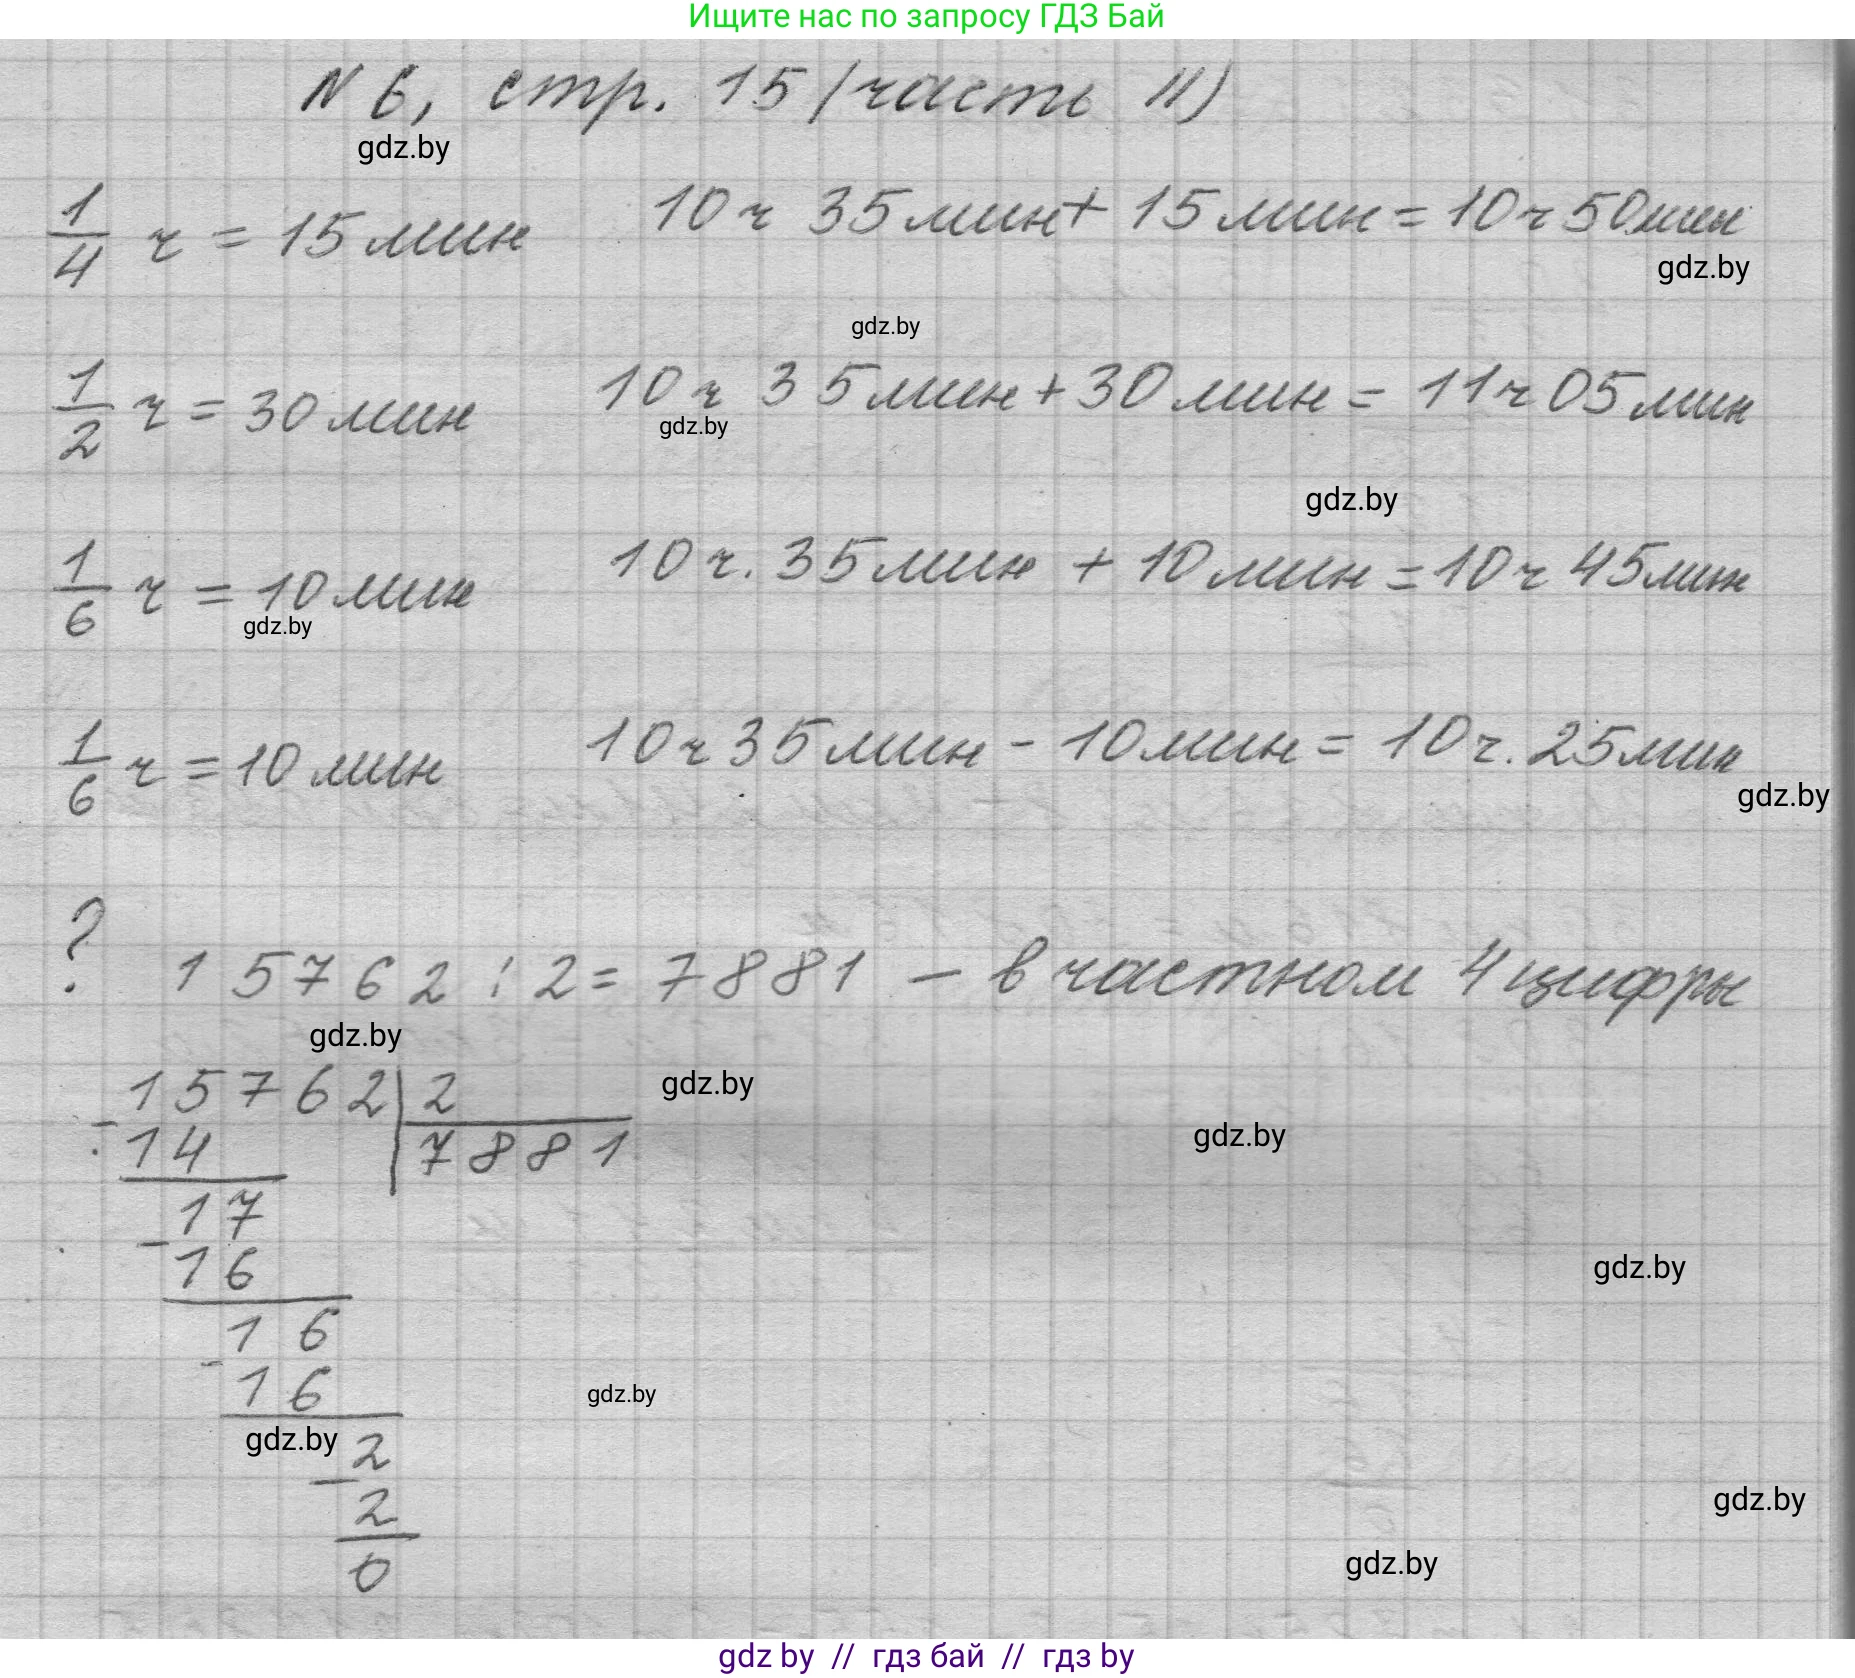 Ищите нас по запросу ГДЗ Бай
N 6, стр. 15 (часть II)
gdz.by
1/4 ч = 15 мин 10 ч 35 мин + 15 мин = 10 ч 50 мин
gdz.by
gdz.by
1/2 ч = 30 мин 10 ч 35 мин + 30 мин = 11 ч 05 мин
gdz.by
gdz.by
1/6 ч = 10 мин 10 ч. 35 мин + 10 мин = 10 ч 45 мин
gdz.by
1/6 ч = 10 мин 10 ч 35 мин - 10 мин = 10 ч. 25 мин
gdz.by
? 15762 : 2 = 7881 – в частном 4 цифры
gdz.by
gdz.by
15762 | 2
- 14 7881
gdz.by
17
- 16
gdz.by
16
- 16
gdz.by
gdz.by
2
- 2
gdz.by
0
gdz.by
gdz by // гдз бай // гдз by